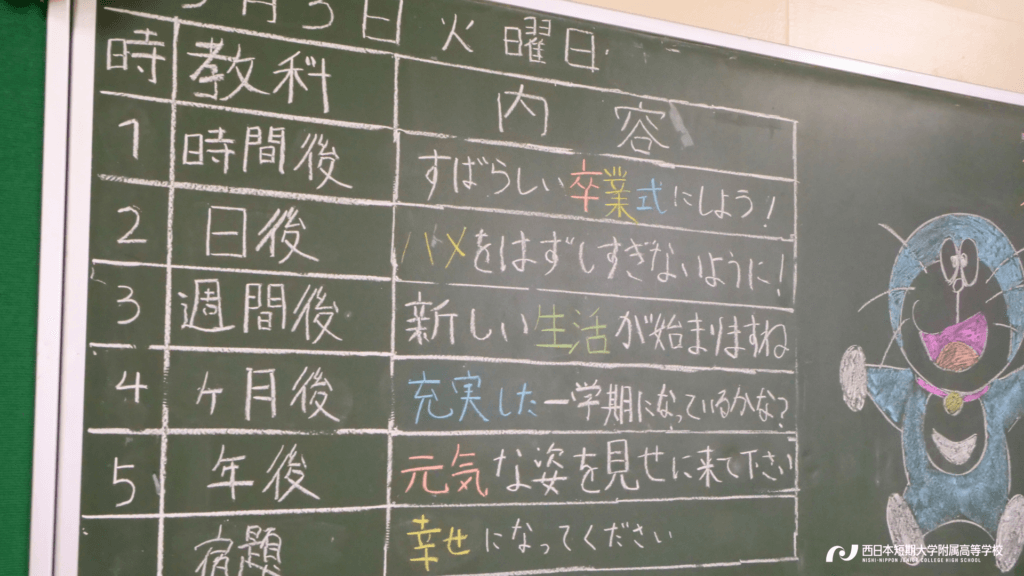 3月3日 火曜日
時 教科 内容
1 時間後 すばらしい卒業式にしよう!
2 日後 ハメをはずしすぎないように!
3 週間後 新しい生活が始まりますね
4 ヶ月後 充実した一学期になっているかな?
5 年後 元気な姿を見せに来て下さい
宿題 幸せになってください
西日本短期大学附属高等学校
NISHI-NIPPON JUNIOR COLLEGE HIGH SCHOOL